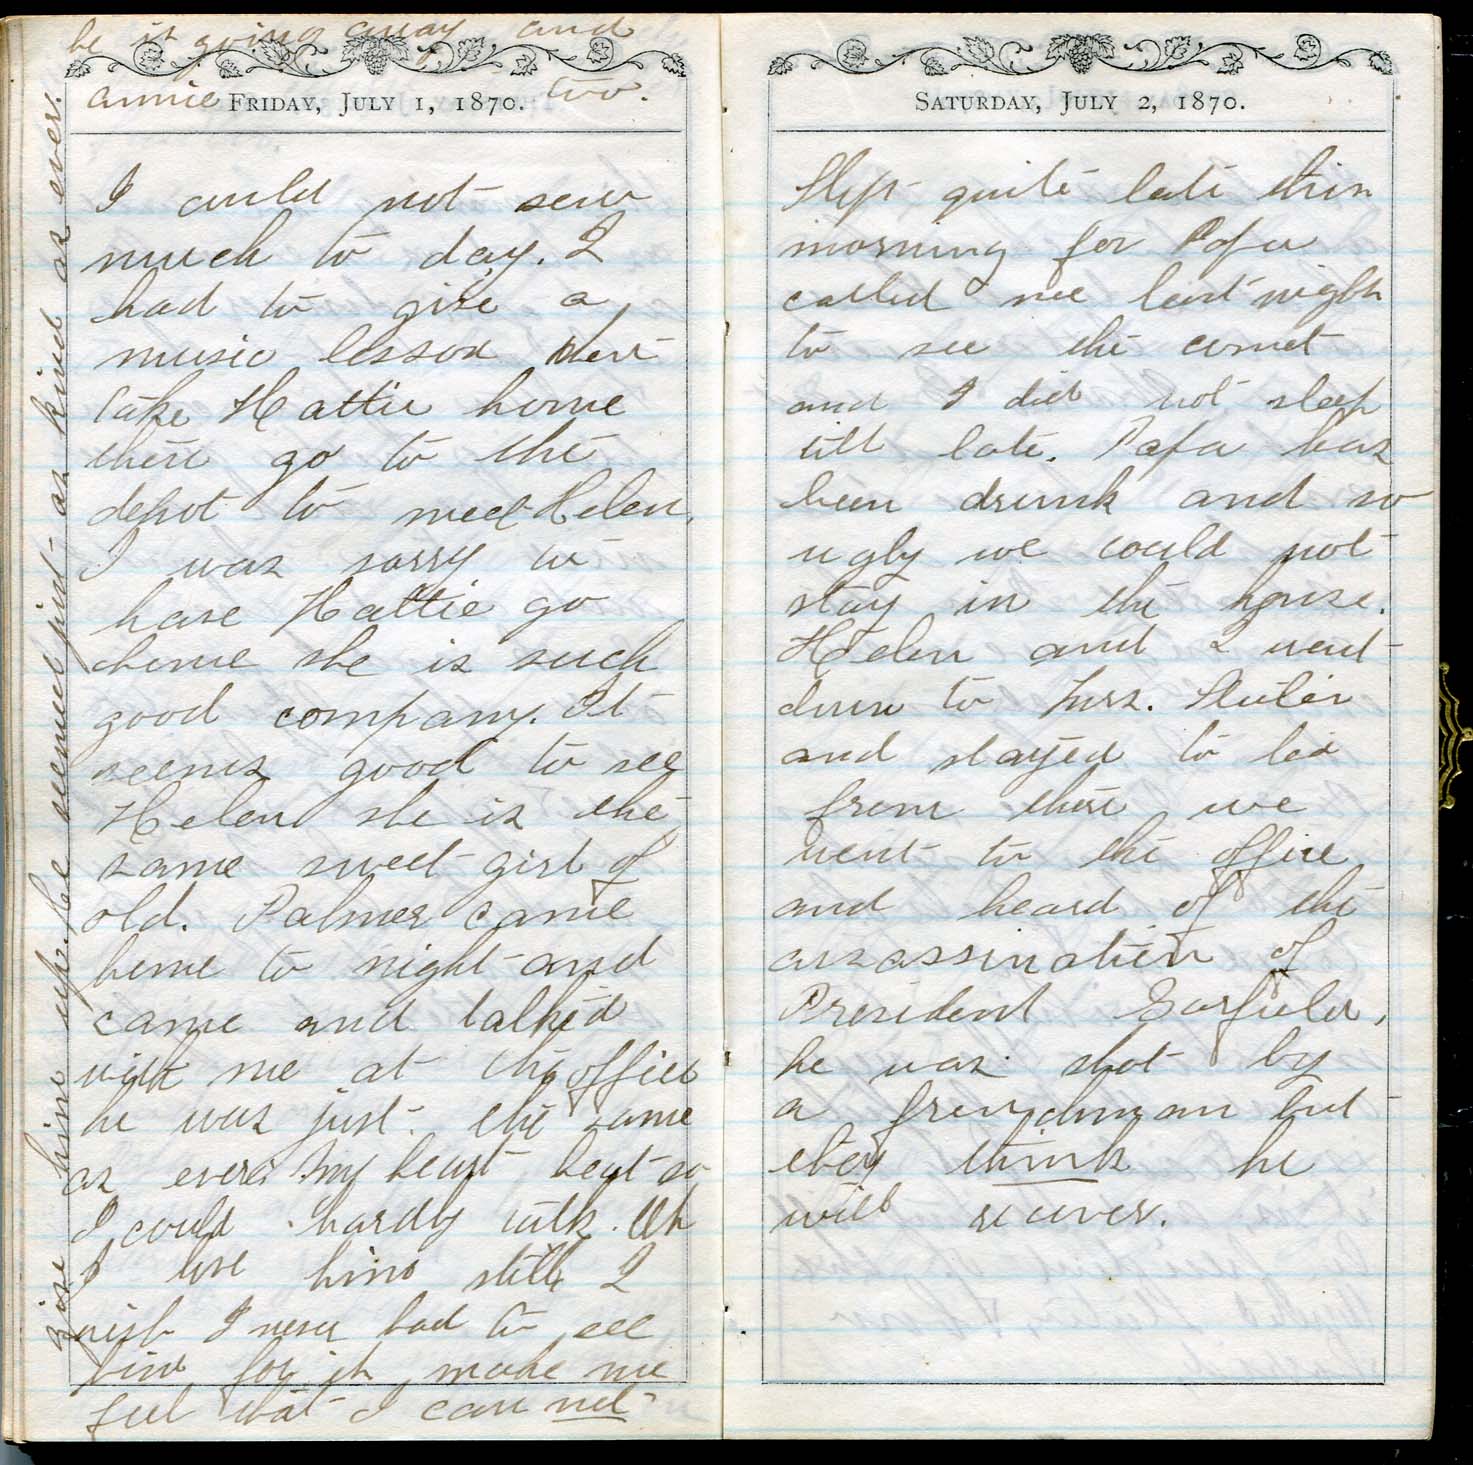 he is going away and
annie too.
FRIDAY, JULY 1, 1870.
I could not sew
much to day. I
had to give a
music lesson then
take Hattie home
then go to the
depot to meet Helen.
I was sorry to
have Hattie go
home she is such
good company. It
seems good to see
Helen she is the
same sweet girl of
old. Palmer came
home to night and
came and talked
with me at the office
he was just the same
as ever. My heart beat so
I could hardly talk. Oh
I love him still I
wish I never had to see
him for it make me
feel that I can not
give him up. he seemed just as kind as ever.
SATURDAY, JULY 2, 1870.
Slept quite late this
morning for Papa
called me last night
to see the comet
and I did not sleep
till late. Papa has
been drunk and so
ugly we could not
stay in the house.
Helen and I went
down to Mrs.
and stayed to tea
from there we
went to the office
and heard of the
assassination of
President Garfield,
he was shot by
a frenchman but
they think he
will recover.